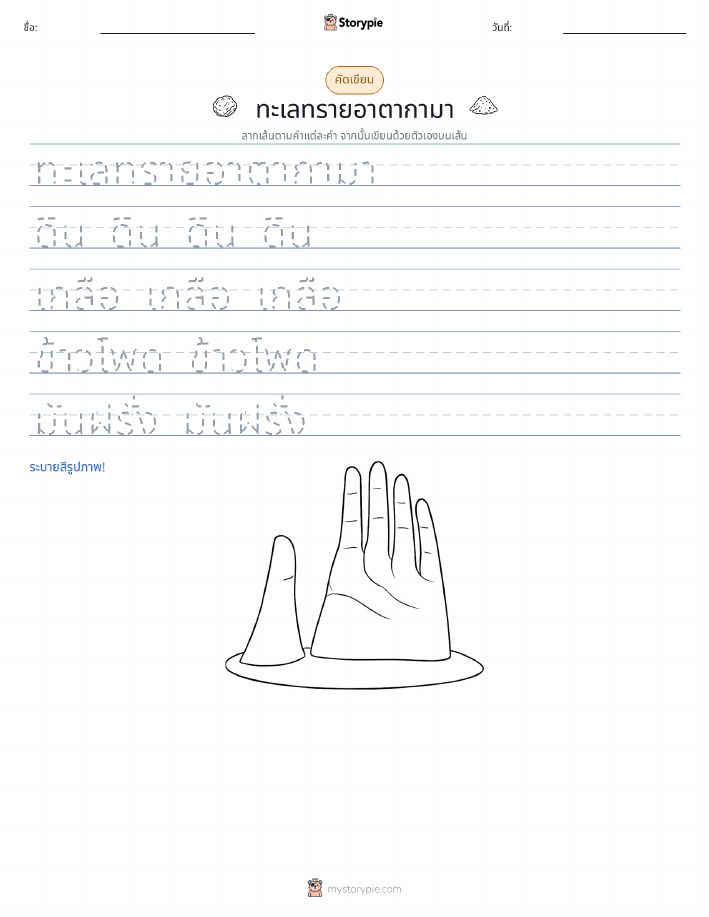 ชื่อ: Storypie วันที่:
คัดเขียน
ทะเลทรายอาตากามา
ลากเส้นตามคำแต่ละคำ จากนั้นเขียนด้วยตัวเองบนเส้น
ทะเลทรายอาตากามา
ดิน ดิน ดิน ดิน
เกลือ เกลือ เกลือ
ข้าวโพด ข้าวโพด
มันฝรั่ง มันฝรั่ง
ระบายสีรูปภาพ!
mystorypie.com